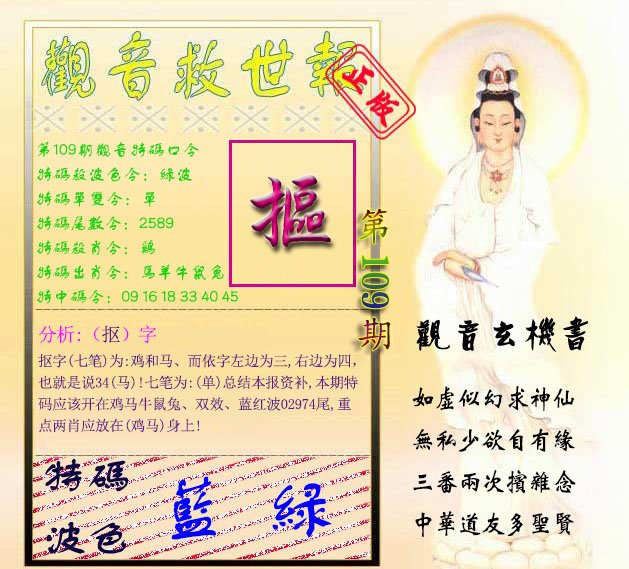 觀音救世報
正版
第109期觀音特碼口令
特碼殺波色令：綠波
特碼單雙令：單
特碼尾數令：2589
特碼殺肖令：鷄
特碼出肖令：馬羊牛鼠兔
特中碼令：09 16 18 33 40 45
摳
第109期
分析:（抠）字
抠字(七笔)为:鸡和马、而依字左边为三,右边为四,
也就是说34(马)!七笔为:(单)总结本报资补,本期特
码应该开在鸡马牛鼠兔、双效、蓝红波02974尾,重
点两肖应放在(鸡马)身上!
特碼
波色
藍綠
觀音玄機書
如虛似幻求神仙
無私少欲自有緣
三番兩次擯雜念
中華道友多聖賢